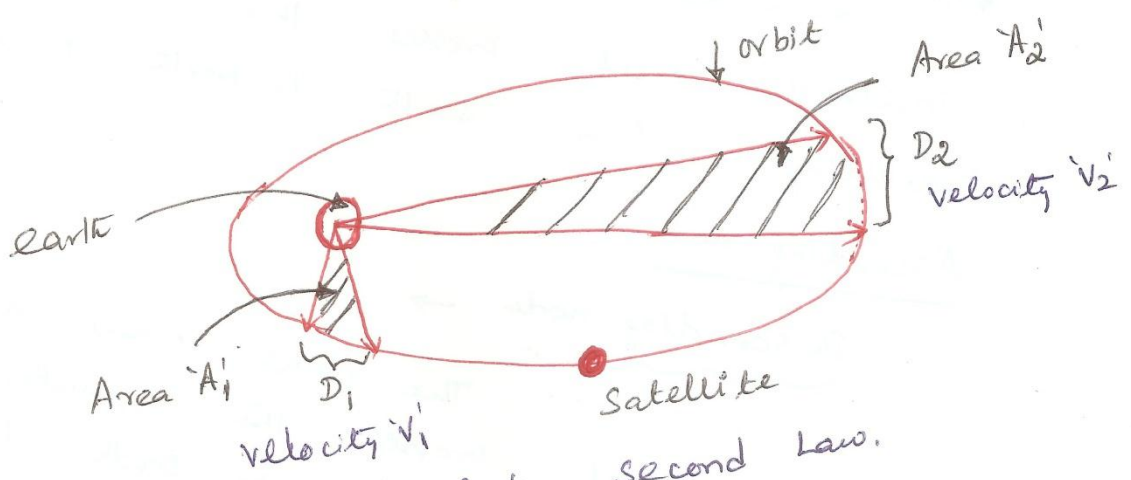 orbit
Area 'A2'
D2
velocity 'V2'
earth
Area 'A1'
D1
velocity 'V1'
Satellite
second Law.